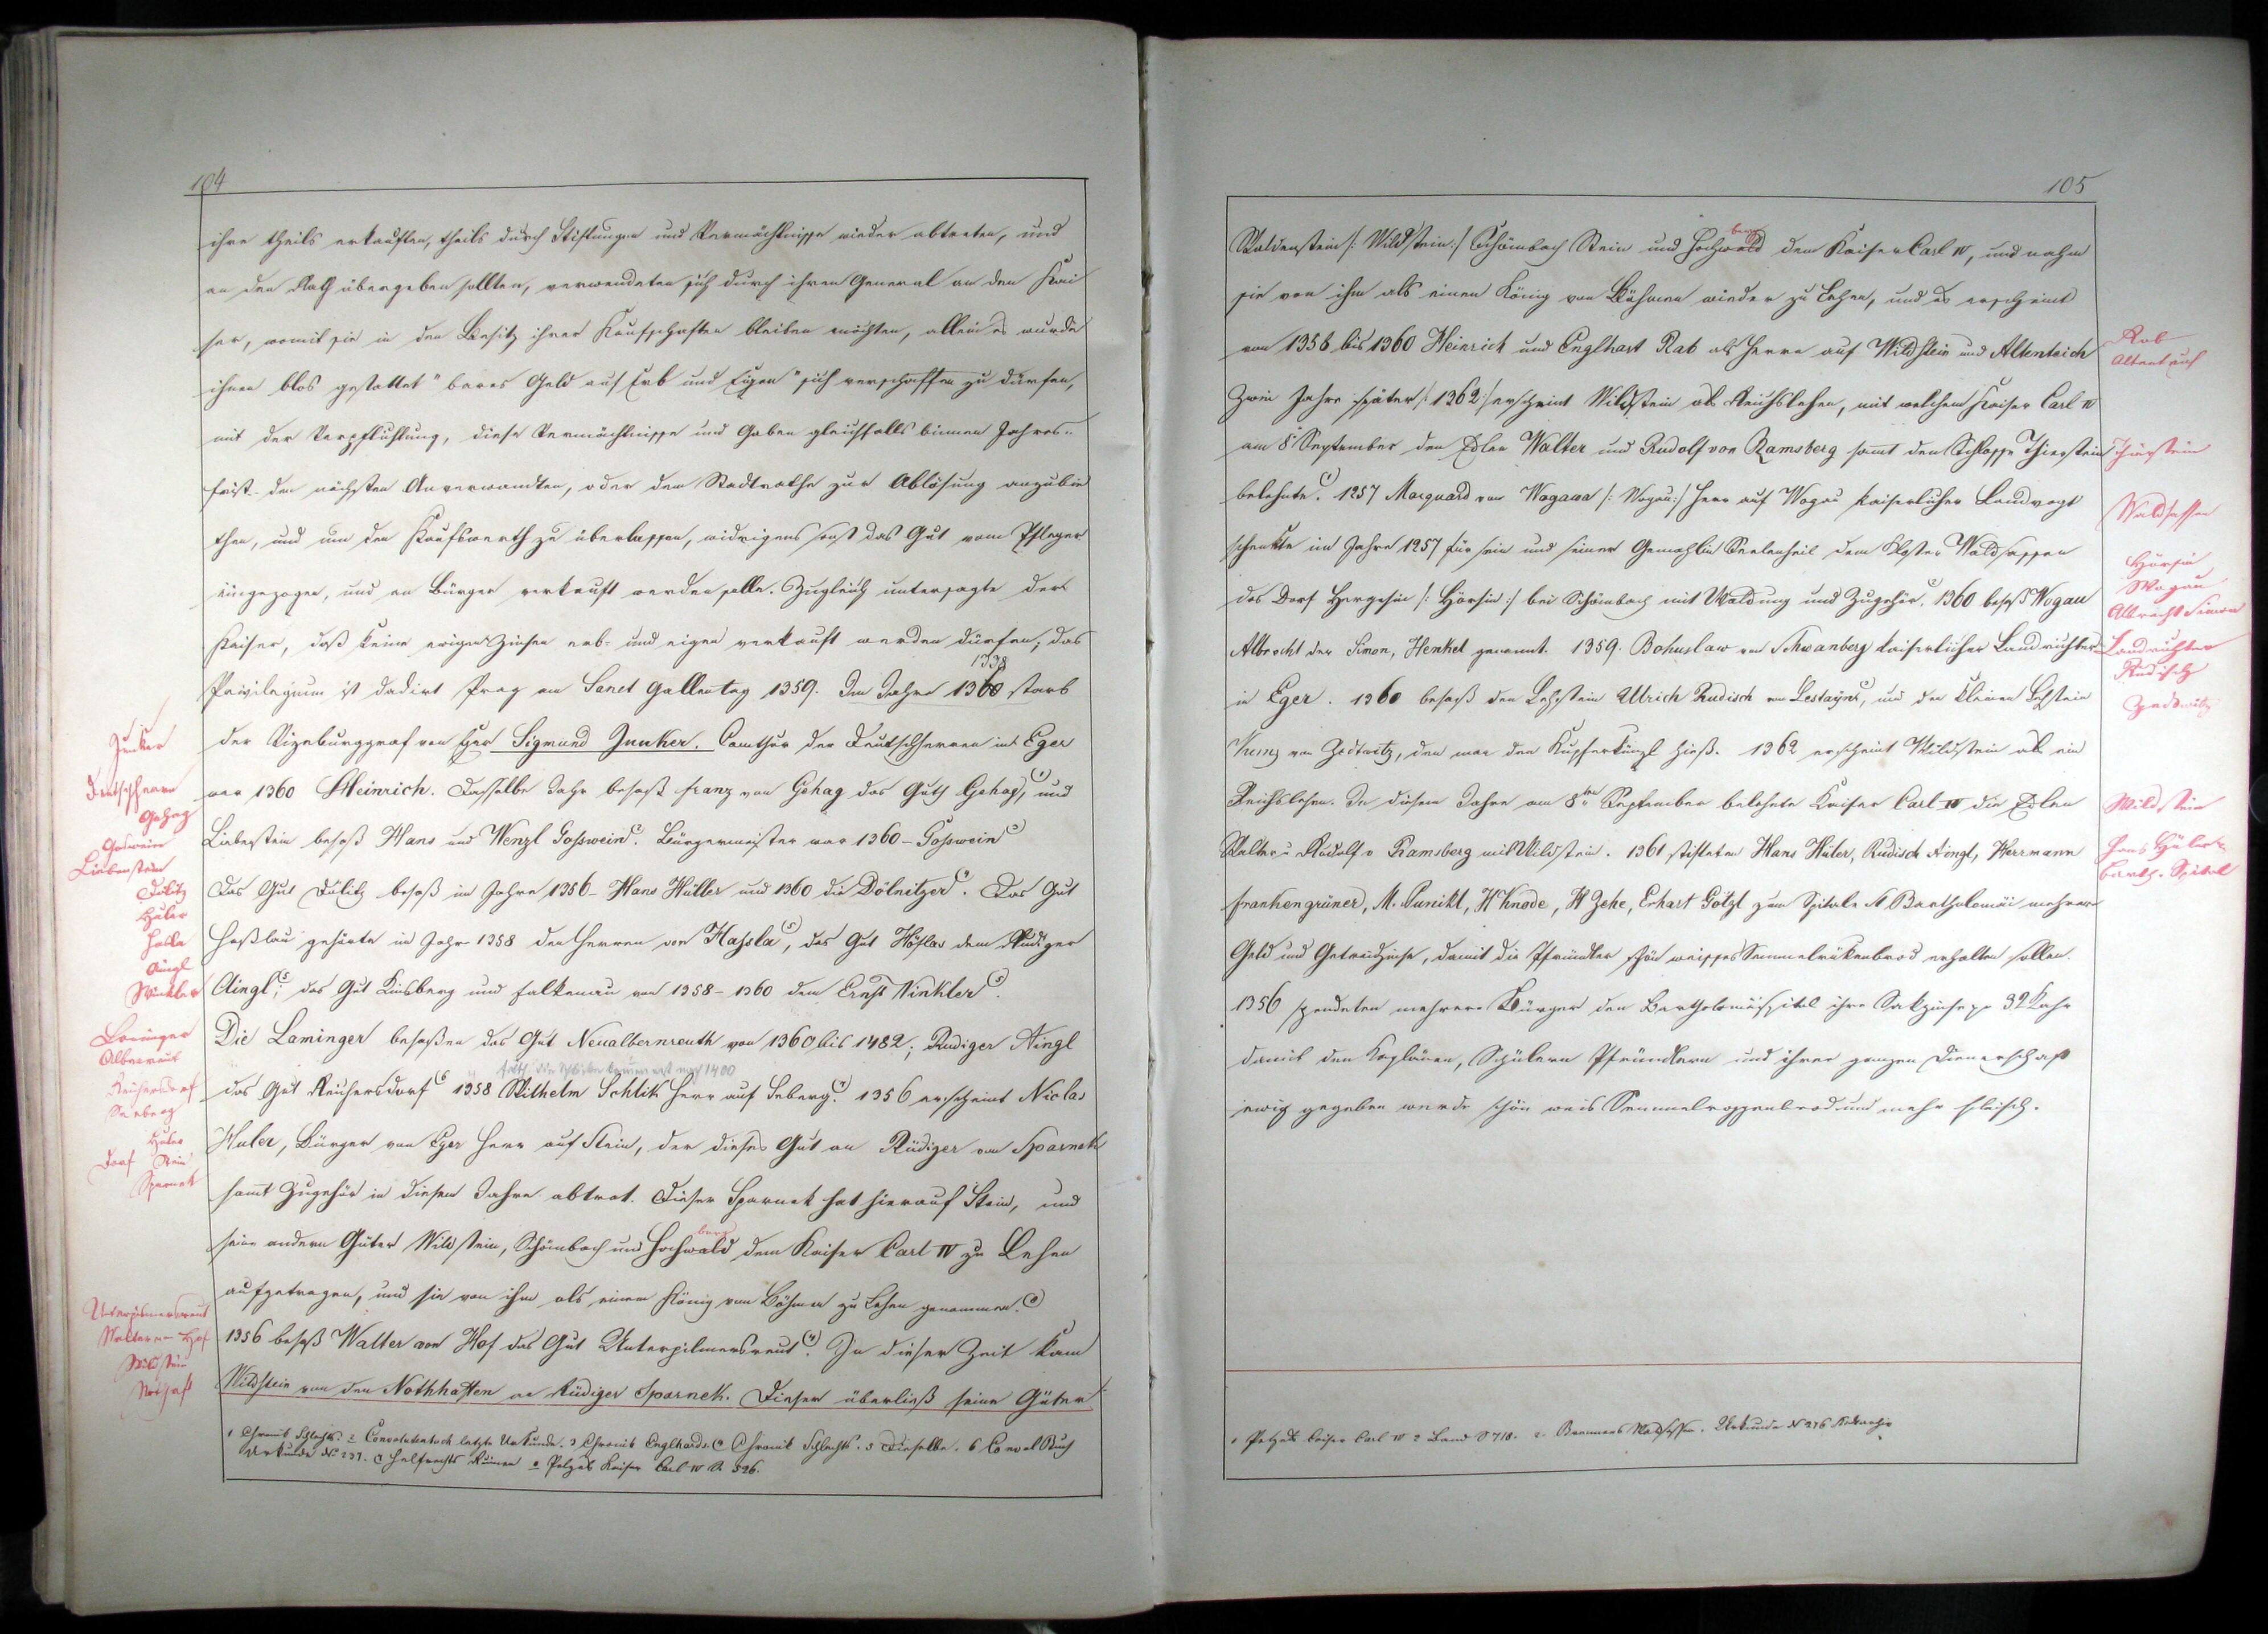 104
ihre theils erkauften, theils durch Stiftungen und Vermächtnisse wieder abtreten, und
an den Rath übergeben sollten, verwendeten sich durch ihren General an den Kai
ser, womit sie in den Besitz ihrer Kaufschaften bleiben möchten, allein es wurde
ihnen blos gestattet "bares Geld auf Erb und Eigen" sich verschaffen zu dürfen,
mit der Verpflichtung, diese Vermächtnisse und Gaben gleichfalls binnen Jahres-
frist den nächsten Anverwandten, oder dem Stadtrathe zur Ablösung anzubie
then, und um den Kaufswerth zu überlassen, widrigens sonst das Gut vom Pfleger
eingezogen, und an Bürger verkauft werden solle. Zugleich untersagte der
Kaiser, daß keine ewigen Zinsen erb- und eigen verkauft werden dürfen, das
1338
Privilegium ist dadirt Prag an Sanct Gallentag 1359. Im Jahre 1360 starb
Junker
der Vizeburggraf von Eger Sigmund Junker. Comthur der Deutschherren in Eger
Deutschherrn
war 1360 Heinrich. Dasselbe Jahr besaß Franz von Gehag das Guth Gehag, und
Gehag
Gosswein
Liebenstein
Liebenstein besaß Hans und Wenzl Goßwein. Bürgermeister war 1360 - Goßwein
Dölitz
Das Gut Dölitz besaß im Jahre 1356 - Hans Hüller und 1360 die Dölnitzer. Das Gut
Huler
Hasla
Haßlau gehörte im Jahr 1358 den Herren von Hassla, das Gut Höflas dem Rudiger
Aingl
Winkler
Aingl; das Gut Kinsberg und Falkenau von 1358 - 1360 dem Ernst Winkler.
Laminger
Albernreut
Die Laminger besaßen das Gut Neualbernreuth von 1360 bis 1482; Rudiger Aingl
Reichersdorf
Seeberg
das Gut Reichersdorf 1358 Wilhelm Schlik Herr auf Seberg. 1356 erscheint Niclas
Huler
Dorf Stein
Huler, Bürger von Eger Herr auf Stein, der dieses Gut an Rüdiger von Sparnek
Sparnek
samt Zugehör in diesem Jahre abtrat. Dieser Sparnek hat hierauf Stein, und
berg
seine andern Güter Wildstein, Schömbach und Hochwald dem Kaiser Carl IV zu Lehen
aufgetragen, und sie von ihm als einem König von Böhmen zu Lehen genommen.
Unterpilmersreut
Walter von Hof
1356 besaß Walter von Hof das Gut Unterpilmersreut. In dieser Zeit kam
Wildstein
Nothaft
Wildstein von den Nothhaften an Rüdiger Sparnek. Dieser überließ seine Güter
1 Chronik Schlechts. 2 letzte Urkunde. 3 Chronik Englhards. 4 Chronik Schlechts. 5 Dieselbe. 6 Buch
Urkunde No 237. Helfrechts Ruinen Pelzels Kaiser Carl IV S 526.
105
berg
Waldenstein /: Wildstein :/ Schömbach Stein und Hochwald dem Kaiser Carl IV, und nahm
sie von ihm als einen König von Böhmen wieder zu Lehen, und es erscheint
von 1356 bis 1360 Heinrich und Englhart Rab als Herrn auf Wildstein und Altenteich
Rab
Altenteich
Zwei Jahre später /: 1362 :/ erscheint Wildstein als Reichslehen, mit welchem Kaiser Carl IV
am 8 September den Edlen Walter und Rudolf von Ramsberg samt den Schlosse Thierstein
Thierstein
belehnte. 1257 Marquard von Wogawa /: Wogau :/ Herr auf Wogau kaiserlicher Landvogt
Waldsassen
schenkte im Jahre 1257 für sein und seiner Gemahlin Seelenheil dem Kloster Waldsassen
Hörsin
Wogau
das Dorf Hergesin /: Hörsin :/ bei Schömbach mit Waldung und Zugehör. 1360 besaß Wogau
Albrecht Simon
Albrecht der Simon, Henkel genannt. 1359. Bohuslaw von Schwanberg kaiserlicher Landrichter
Landrichter
Rudisch
in Eger. 1360 besaß den Lehstein Ullrich Rudisch von, und den kleinen Lehstein
Zedtwitz
von Zedtwitz, den man den Kupferkunzl hieß. 1362 erscheint Wildstein als ein
Reichslehen. In diesem Jahre am 8ten September belehnte Kaiser Carl IV die Edlen
Wildstein
Walter u Rudolf v Ramsberg mit Wildstein. 1361 stifteten Hans Huler, Rudisch Aingl, Herrmann
Hans Huler
Barth. Spital
Frankengrüner, M. Punikl, H Knode, H Zehe, Erhart Götzl zum Spitale St Bartholomäi mehrere
Geld und Getreidzinse, damit die Pfründler schön weisses Semmelrükenbrod erhalten sollen.
1356 spendeten mehrere Bürger den Bartholomäispital ihre Sakzinse pr 32 Kahr
damit den Kaplänen, Schülern Pfründlern und ihrer ganzen Dienerschaft
ewig gegeben werde schön weis Semmelroggenbrod und mehr Fleisch.
1 Pelzels Kaiser Carl IV 2 Band S 718. 2. Brenners Waldsassen. Urkunde N 276